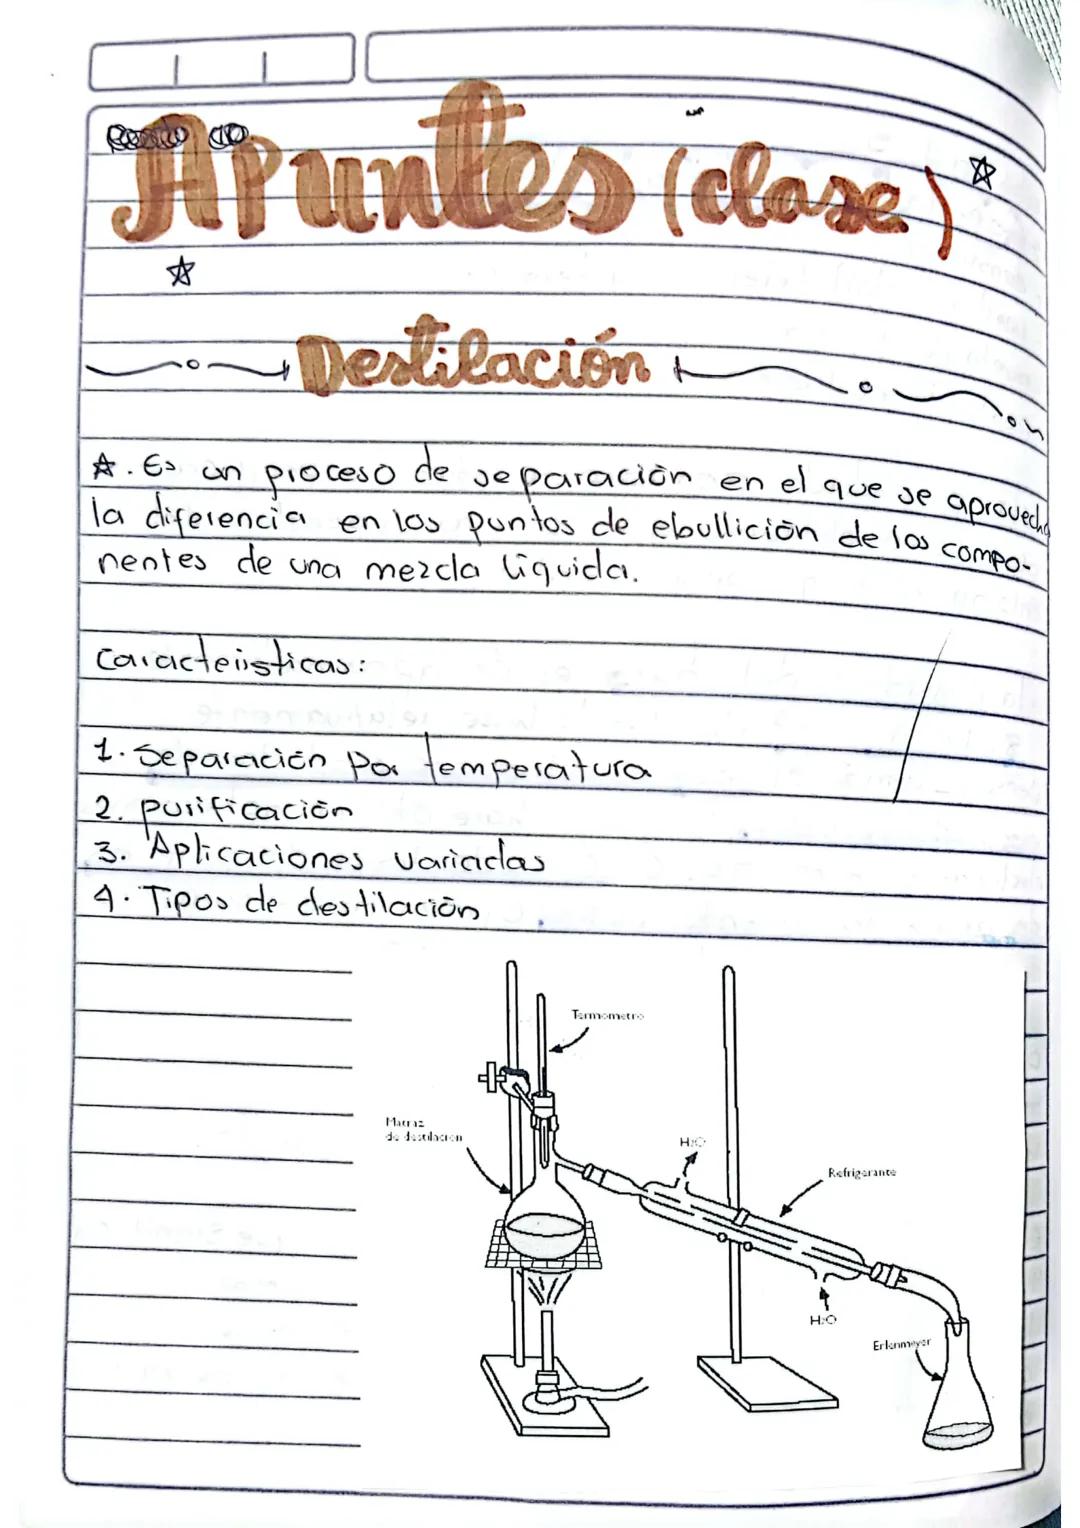 Apuntes (clase)
Destilación
☆. Es un proceso de separación en el que se aprovecha
la diferencia en los puntos de ebullición de los compo-
nentes de una mezcla líquida.
Características:
1. Separación por temperatura
2. purificación
3. Aplicaciones variadas
4. Tipos de destilación
Termometro
Matraz
de destilacion
H2O
Refrigerante
H2O
Erlenmeyer